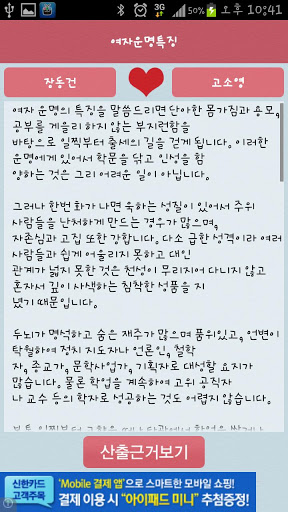 50% 오후 10:41
여자운명특징
장동건
고소영
여자 운명의 특징을 말씀드리면 단아한 몸가짐과 용모,
공부를 게을리 하지 않는 부지런함을
바탕으로 일찍부터 출세의 길을 걷게 됩니다. 이러한
운명에게 있어서 학문을 닦고 인성을 함
양하는 것은 그리 어려운 일이 아닙니다.
그러나 한번 화가 나면 욱하는 성질이 있어서 주위
사람들을 난처하게 만드는 경우가 많으며,
자존심과 고집 또한 강합니다. 다소 급한 성격이라 여러
사람들과 쉽게 어울리지 못하고 대인
관계가 넓지 못한 것은 천성이 무리지어 다니지 않고
혼자서 깊이 사색하는 침착한 성품을 지
녔기 때문입니다.
두뇌가 명석하고 숨은 재주가 많으며 품위있고, 언변이
탁월하여 정치 지도자나 언론인, 철학
자, 종교가, 문학사업가, 기획자로 대성할 요지가
많습니다. 물론 학업을 계속하여 고위 공직자
나 교수 등의 학자로 성공하는 것도 어렵지 않습니다.
산출근거보기
신한카드
고객주목
'Mobile 결제 앱'으로 스마트한 모바일 쇼핑!
결제 이용 시 "아이패드 미니" 추첨증정!